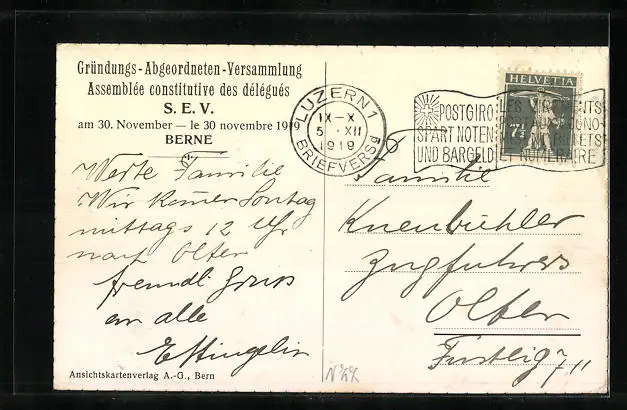 Gründungs-Abgeordneten-Versammlung
Assemblée constitutive des délégués
S. E. V.
am 30. November — le 30 novembre 1919
BERNE
LUZERN 1
IX-X
5 XII
1919
BRIEFVERSD
POSTGIRO
SPART NOTEN
UND BARGELD
LES VIREMENTS
ET NUMERAIRE
HELVETIA
7½
Werte Familie
Wir komen Sontag
mittags 12 Uhr
nach Olten
freundl Gruss
an alle
Familie
Kneubühler
Zugführers
Olten
Ansichtskartenverlag A.-G., Bern